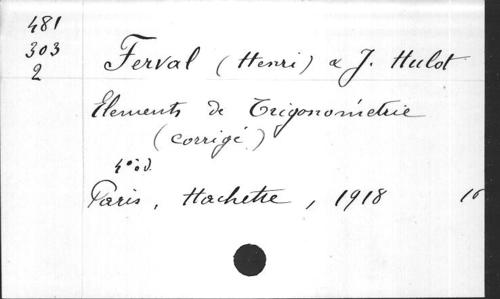 481
303
2
Ferval (Henri) & J. Hulot
Elements de Trigonométrie
(corrigé)
4e éd.
Paris, Hachette, 1918 16